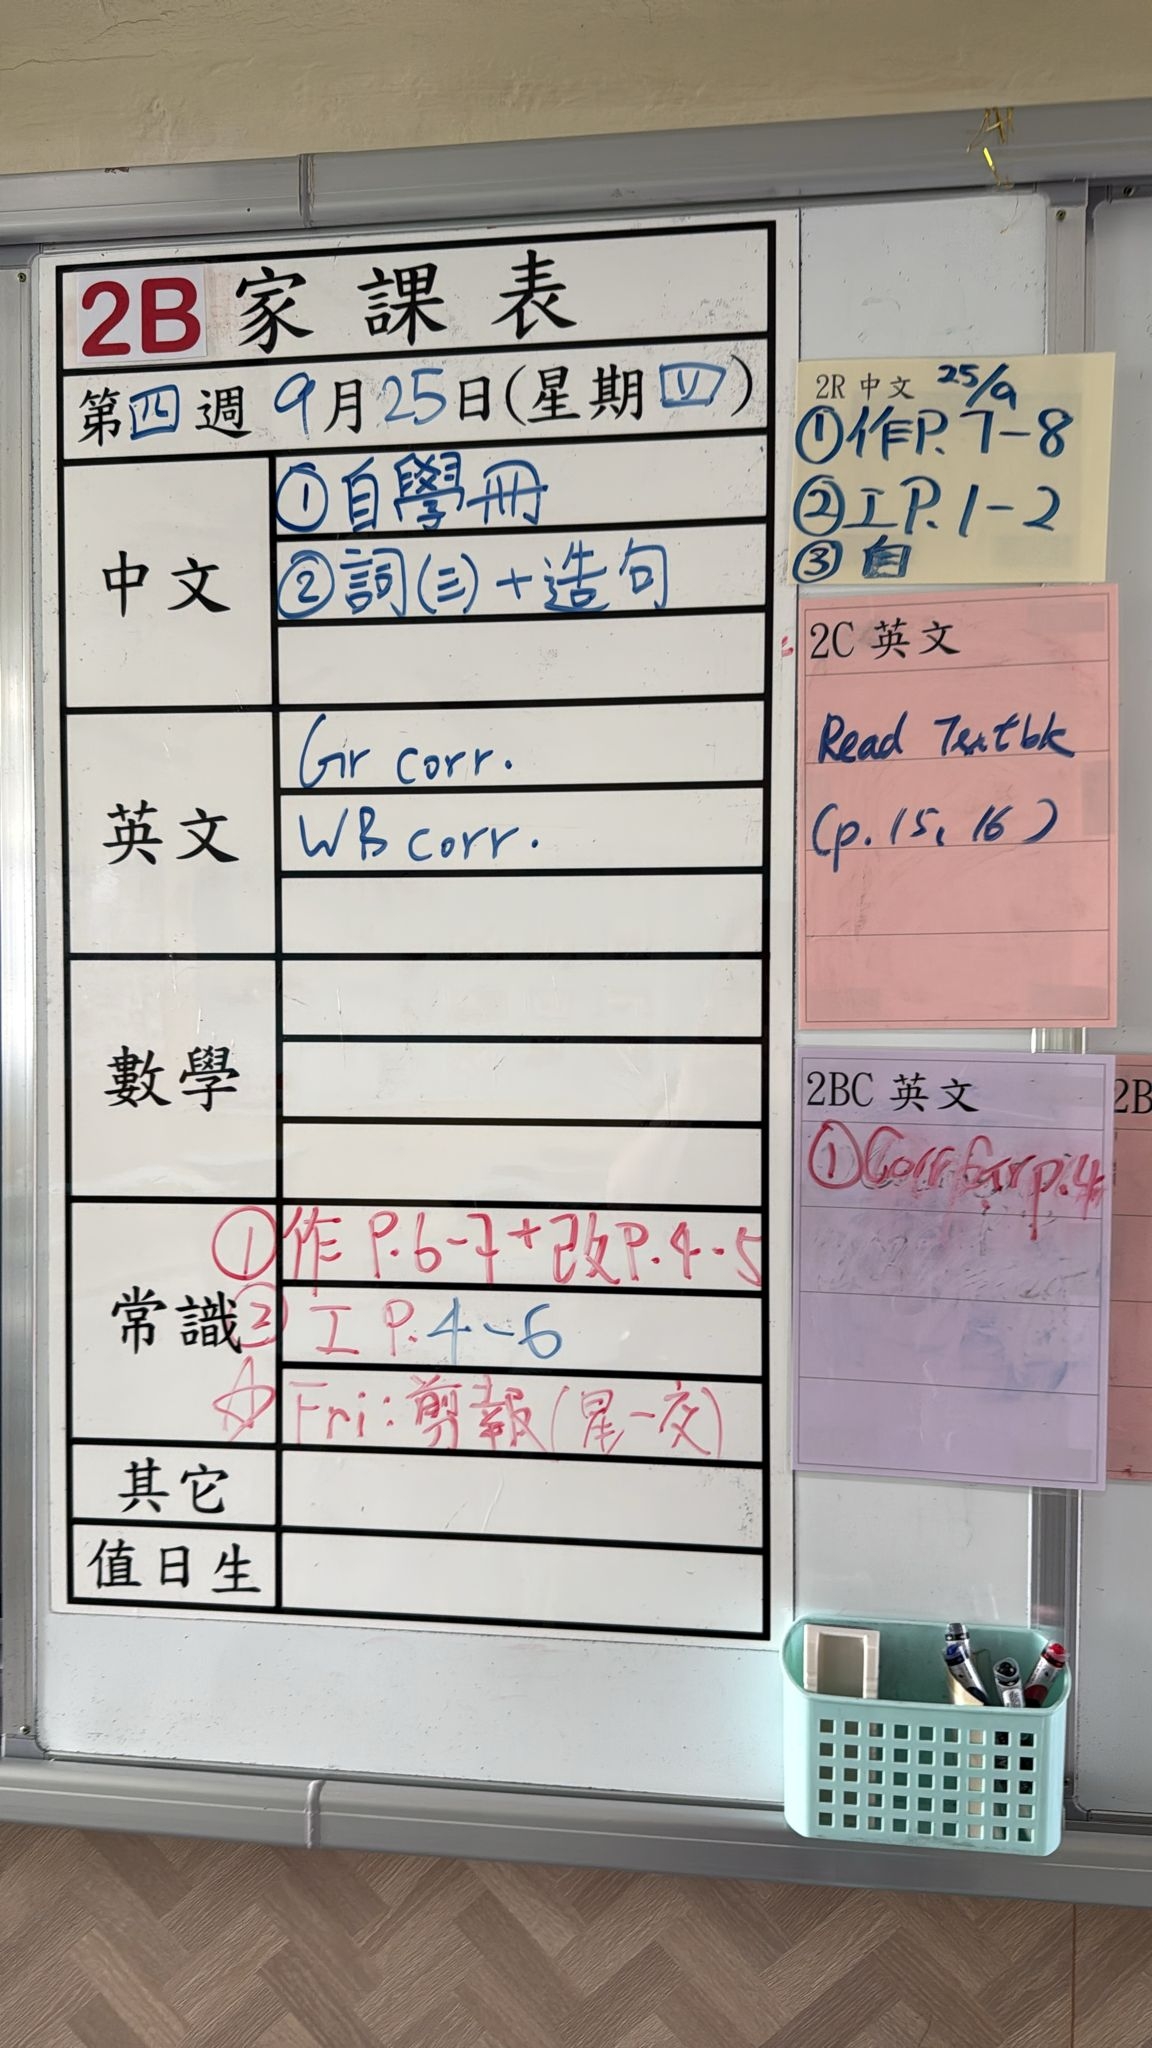 2B 家課表
第四週 9月25日(星期四)
中文
①自學冊
②詞(三)+造句
英文
Gr corr.
WB corr.
數學
常識
①作 P.6-7+改P.4-5
② 工 P.4-6
☆ Fri:剪報(星一交)
其它
值日生
2R 中文 25/9
①作P.7-8
②工P.1-2
③自
2C 英文
Read Textbk
(p.15, 16)
2BC 英文
①Corr Gr p.4
2B